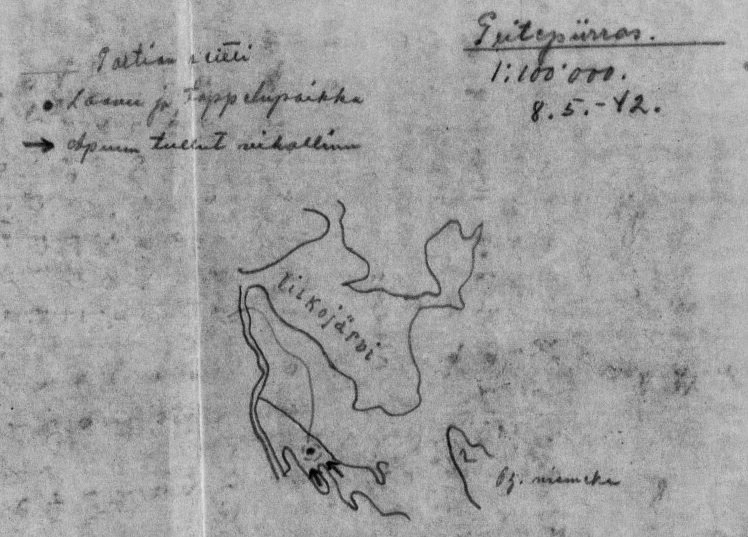 Peitepiirros.
1:100'000.
8.5.-42.
Partion reitti
Laavu ja Tappelupaikka
Apuun tullut vihollinen
Lilkojärvi